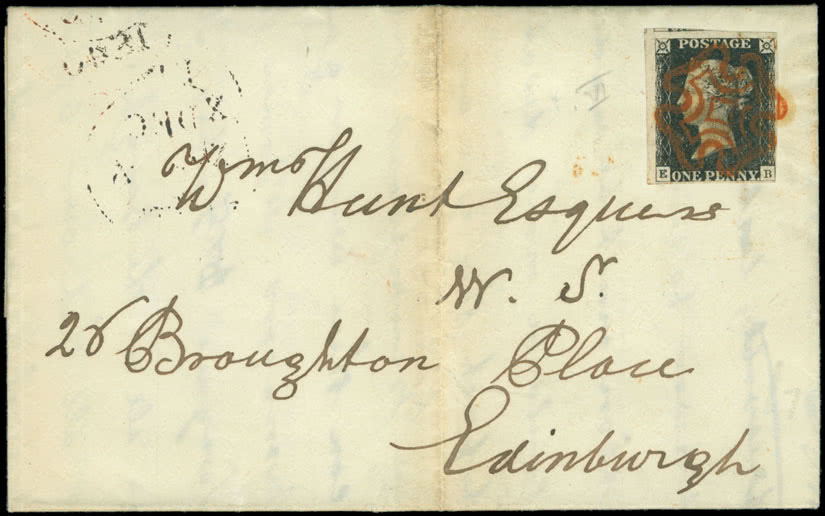 POSTAGE
E ONE PENNY B
Wm Hunt Esquire
W. S.
26 Broughton Place
Edinburgh